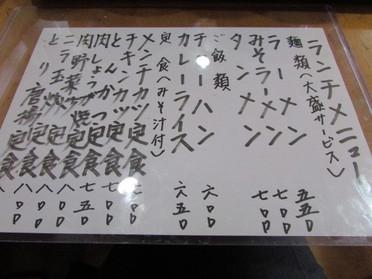 ランチメニュー
麺類(大盛サービス)
ラーメン 五五〇
みそラーメン 五五〇
タンメン 七〇〇
ご飯類
チャーハン 六〇〇
カレーライス 六五〇
定食(みそ汁付)
メンチカツ定食 七〇〇
チキンカツ定食 七〇〇
とんかつ定食 七五〇
肉しょうが焼定食 七五〇
肉野菜炒定食 八〇〇
ニラ玉炒定食 八〇〇
とり唐揚定食 八〇〇